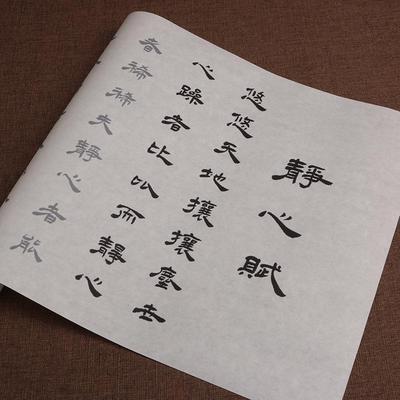 靜心賦
悠悠天地攘攘塵世
心躁者比比而靜心
者稀稀夫靜心者能